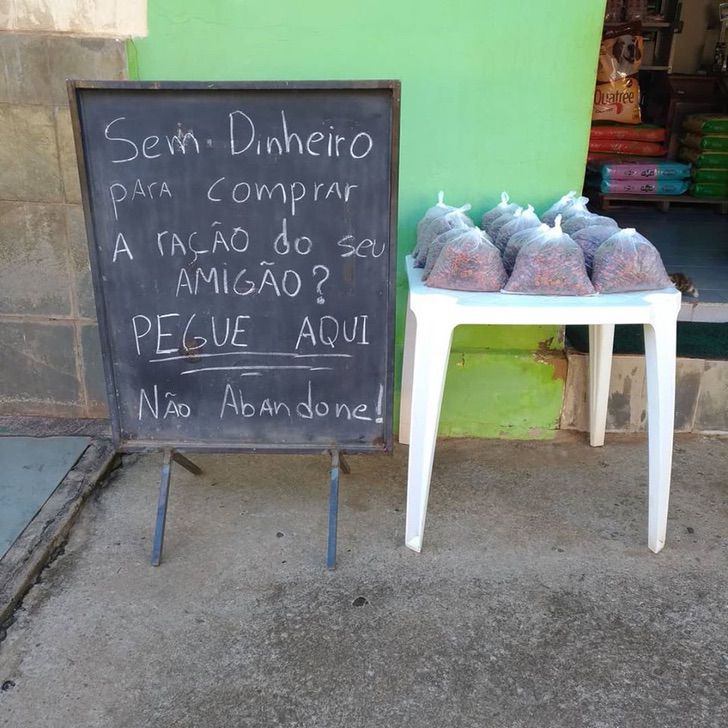 Sem Dinheiro
para comprar
A ração do seu
AMIGÃO?
PEGUE AQUI
Não Abandone!
Quatree